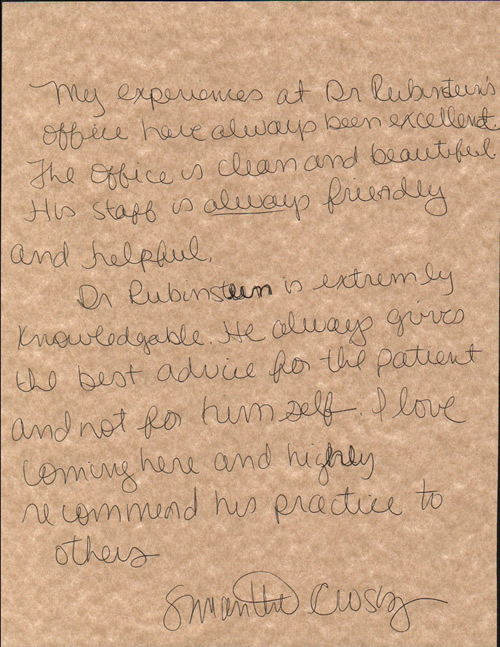 My experiences at Dr Rubinstein's
office have always been excellent.
The office is clean and beautiful
His staff is always friendly
and helpful.
Dr Rubinstein is extremly
knowledgable. He always gives
the best advice for the patient
and not for himself. I love
coming here and highly
recommend his practice to
others
Samantha Crosby